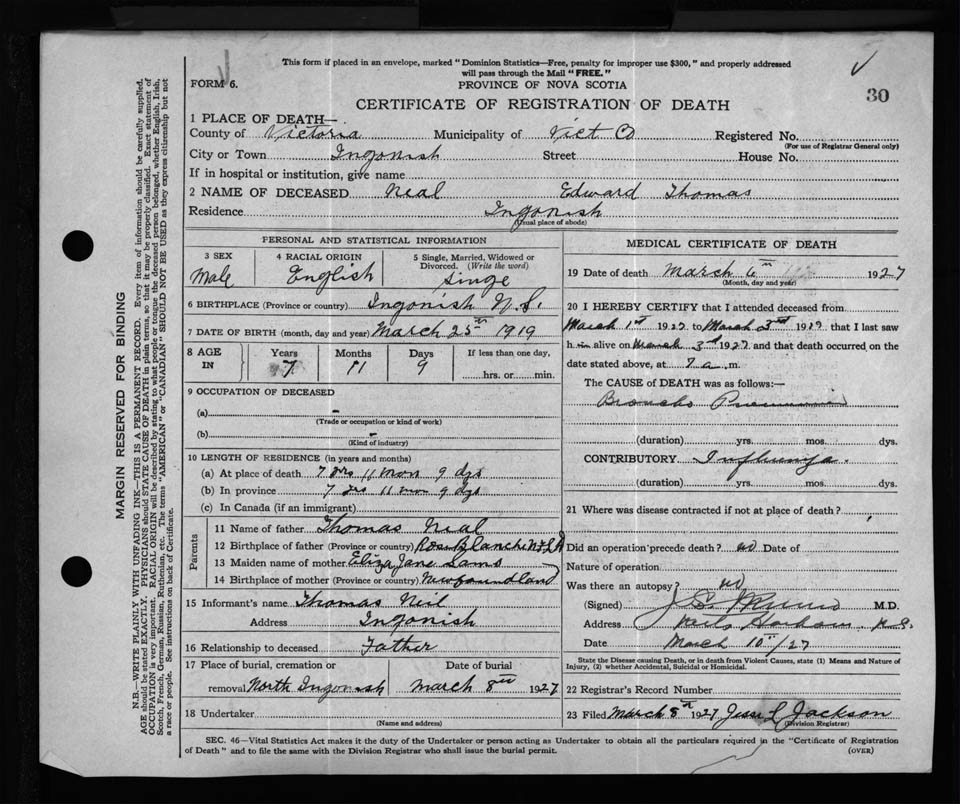 This form if placed in an envelope, marked "Dominion Statistics—Free, penalty for improper use $300," and properly addressed
will pass through the Mail "FREE."
FORM 6.
PROVINCE OF NOVA SCOTIA
30
CERTIFICATE OF REGISTRATION OF DEATH
1 PLACE OF DEATH—
County of Victoria Municipality of Vict Co Registered No.
(For use of Registrar General only)
City or Town Ingonish Street House No.
If in hospital or institution, give name
2 NAME OF DECEASED Neal Edward Thomas
Residence Ingonish
(Usual place of abode)
PERSONAL AND STATISTICAL INFORMATION
3 SEX 4 RACIAL ORIGIN 5 Single, Married, Widowed or
Divorced. (Write the word)
Male English Singe
6 BIRTHPLACE (Province or country) Ingonish N.S.
7 DATE OF BIRTH (month, day and year) March 25th 1919
8 AGE IN Years Months Days If less than one day,
7 11 9 hrs. or min.
9 OCCUPATION OF DECEASED
(a) –
(Trade or occupation or kind of work)
(b) –
(Kind of industry)
10 LENGTH OF RESIDENCE (in years and months)
(a) At place of death 7 yrs 11 mon 9 dys
(b) In province 7 yrs 11 mon 9 dys
(c) In Canada (if an immigrant)
Parents
11 Name of father Thomas Neal
12 Birthplace of father (Province or country) Rose Blanche Nfld
13 Maiden name of mother Eliza Jane Sams
14 Birthplace of mother (Province or country) Newfoundland
15 Informant's name Thomas Neil
Address Ingonish
16 Relationship to deceased Father
17 Place of burial, cremation or Date of burial
removal North Ingonish March 8th 1927
18 Undertaker
(Name and address)
MEDICAL CERTIFICATE OF DEATH
19 Date of death March 6th 1927
(Month, day and year)
20 I HEREBY CERTIFY that I attended deceased from
March 1st 1927 to March 3rd 1927 that I last saw
h im alive on March 3rd 1927 and that death occurred on the
date stated above, at 7 a. m.
The CAUSE of DEATH was as follows:—
Broncho Pneumonia
(duration) yrs. mos. dys.
CONTRIBUTORY Influenza.
(duration) yrs. mos. dys.
21 Where was disease contracted if not at place of death?
Did an operation precede death? no Date of
Nature of operation
Was there an autopsy? no
(Signed) M.D.
Address Neils Harbour N.S.
Date March 10th/27
State the Disease causing Death, or in death from Violent Causes, state (1) Means and Nature of
Injury, (2) whether Accidental, Suicidal or Homicidal.
22 Registrar's Record Number
23 Filed March 8th 1927 Jessie L Jackson
(Division Registrar)
SEC. 46—Vital Statistics Act makes it the duty of the Undertaker or person acting as Undertaker to obtain all the particulars required in the "Certificate of Registration
of Death" and to file the same with the Division Registrar who shall issue the burial permit.
(OVER)
MARGIN RESERVED FOR BINDING
N.B.—WRITE PLAINLY WITH UNFADING INK—THIS IS A PERMANENT RECORD. Every item of information should be carefully supplied.
AGE should be stated EXACTLY. PHYSICIANS should STATE CAUSE OF DEATH in plain terms, so that it may be properly classified. Exact statement of
OCCUPATION is very important. RACIAL ORIGIN will be described by stating to what people or tongue the deceased person belonged, whether English, Irish,
Scotch, French, German, Russian, Ruthenian, etc. The terms "AMERICAN" or "CANADIAN" SHOULD NOT BE USED as they express citizenship but not
a race or people. See instructions on back of Certificate.